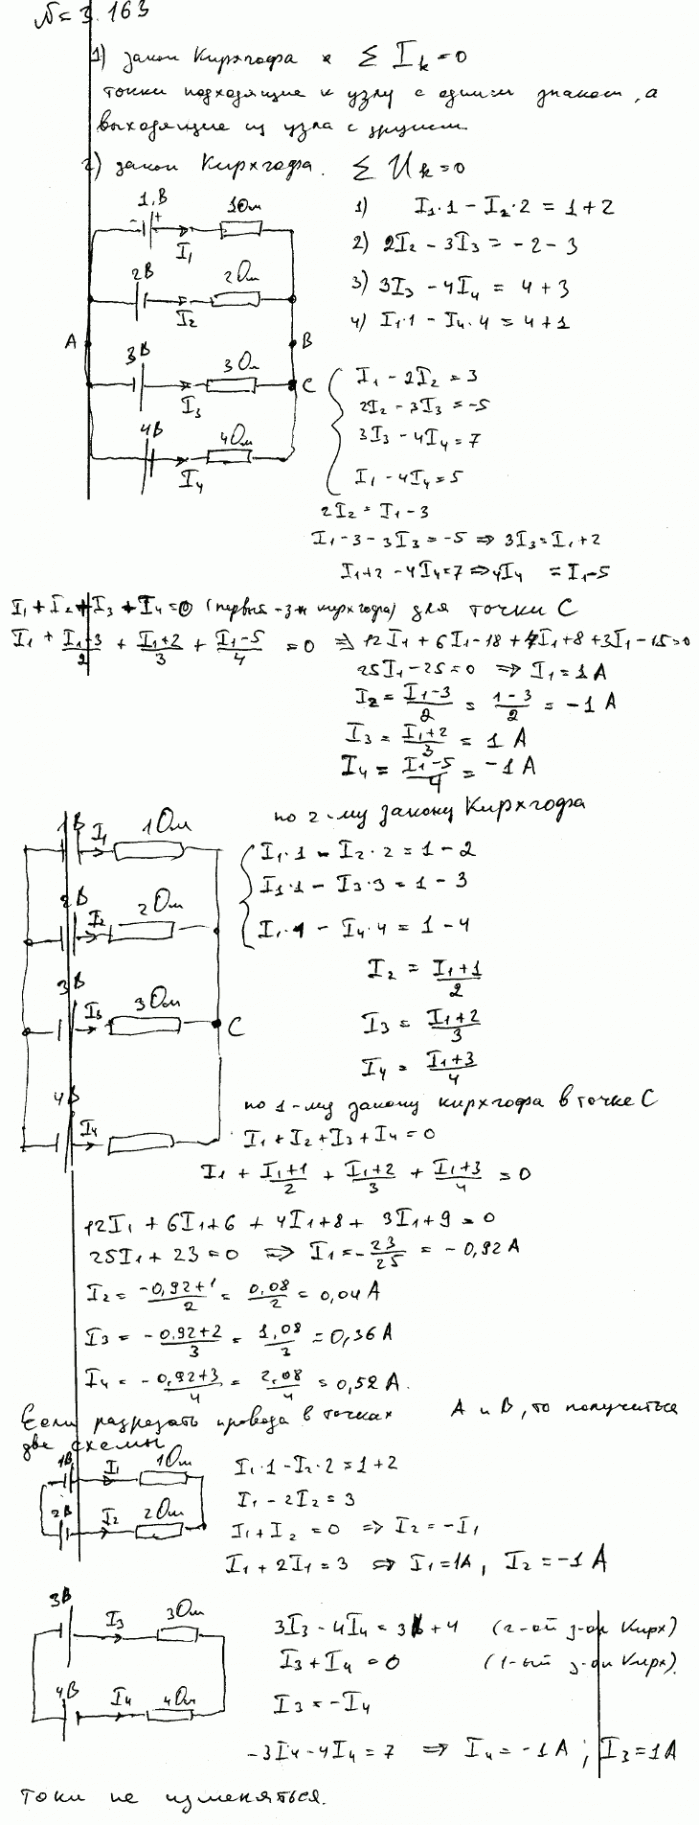 № 3.163
1) закон Кирхгофа ∑ I_k = 0
токи подходящие к узлу с одним знаком, а
выходящие из узла с другим.
2) закон Кирхгофа. ∑ U_k = 0
1 В - + I₁ 1 Ом
2 В I₂ 2 Ом
A B
3 В I₃ 3 Ом C
4 В I₄ 4 Ом
1) I₁·1 − I₂·2 = 1+2
2) 2I₂ − 3I₃ = −2−3
3) 3I₃ − 4I₄ = 4+3
4) I₁·1 − I₄·4 = 4+1
I₁ − 2I₂ = 3
2I₂ − 3I₃ = −5
3I₃ − 4I₄ = 7
I₁ − 4I₄ = 5
2I₂ = I₁ − 3
I₁ − 3 − 3I₃ = −5 ⇒ 3I₃ = I₁ + 2
I₁ + 2 − 4I₄ = 7 ⇒ 4I₄ = I₁ − 5
I₁ + I₂ + I₃ + I₄ = 0 (первый з-н кирхгофа) для точки C
I₁ + (I₁−3)/2 + (I₁+2)/3 + (I₁−5)/4 = 0 ⇒ 12I₁ + 6I₁ − 18 + 4I₁ + 8 + 3I₁ − 15 = 0
25I₁ − 25 = 0 ⇒ I₁ = 1 A
I₂ = (I₁−3)/2 = (1−3)/2 = −1 A
I₃ = (I₁+2)/3 = 1 A
I₄ = (I₁−5)/4 = −1 A
по 2-му закону Кирхгофа
1 В I₁ 1 Ом
2 В I₂ 2 Ом
3 В I₃ 3 Ом C
4 В I₄
I₁·1 − I₂·2 = 1−2
I₁·1 − I₃·3 = 1−3
I₁·1 − I₄·4 = 1−4
I₂ = (I₁+1)/2
I₃ = (I₁+2)/3
I₄ = (I₁+3)/4
по 1-му закону кирхгофа в точке C
I₁ + I₂ + I₃ + I₄ = 0
I₁ + (I₁+1)/2 + (I₁+2)/3 + (I₁+3)/4 = 0
12I₁ + 6I₁+6 + 4I₁+8 + 3I₁+9 = 0
25I₁ + 23 = 0 ⇒ I₁ = −23/25 = −0,92 A
I₂ = (−0,92+1)/2 = 0,08/2 = 0,04 A
I₃ = (−0,92+2)/3 = 1,08/3 = 0,36 A
I₄ = (−0,92+3)/4 = 2,08/4 = 0,52 A.
Если разрезать провода в точках A и B, то получиться
две схемы
1 В I₁ 1 Ом
2 В I₂ 2 Ом
I₁·1 − I₂·2 = 1+2
I₁ − 2I₂ = 3
I₁ + I₂ = 0 ⇒ I₂ = −I₁
I₁ + 2I₁ = 3 ⇒ I₁ = 1A, I₂ = −1 A
3 В I₃ 3 Ом
4 В I₄ 4 Ом
3I₃ − 4I₄ = 3+4 (2-ой з-он Кирх)
I₃ + I₄ = 0 (1-ый з-он Кирх).
I₃ = −I₄
−3I₄ − 4I₄ = 7 ⇒ I₄ = −1 A; I₃ = 1A
Токи не изменяться.